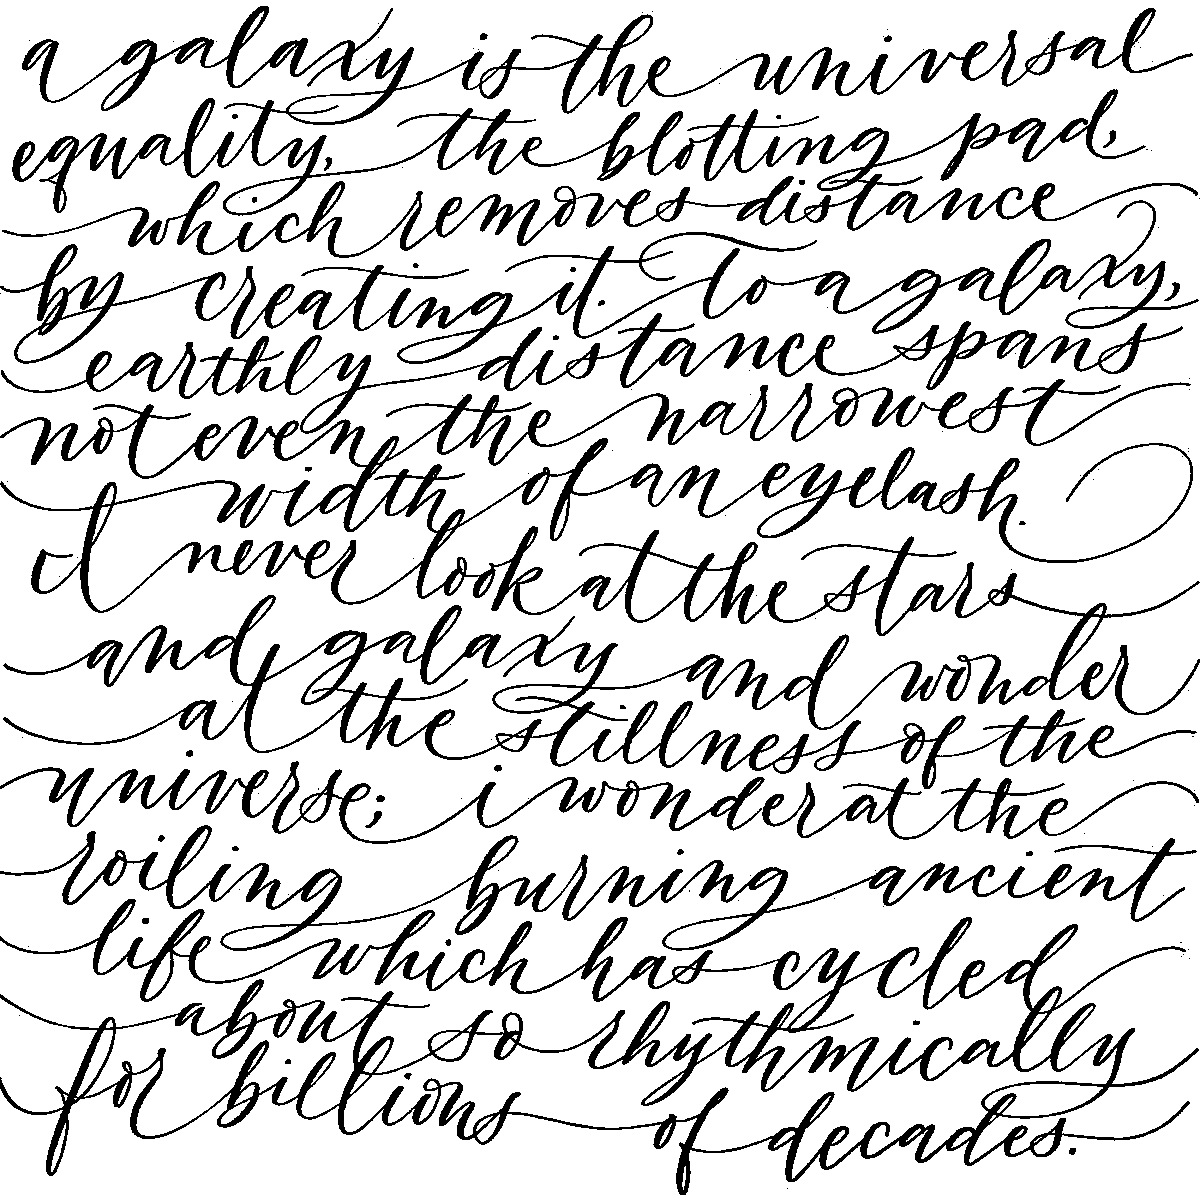 a galaxy is the universal
equality, the blotting pad,
which removes distance
by creating it. to a galaxy,
earthly distance spans
not even the narrowest
width of an eyelash.
I never look at the stars
and galaxy and wonder
at the stillness of the
universe; i wonder at the
roiling burning ancient
life which has cycled
about so rhythmically
for billions of decades.